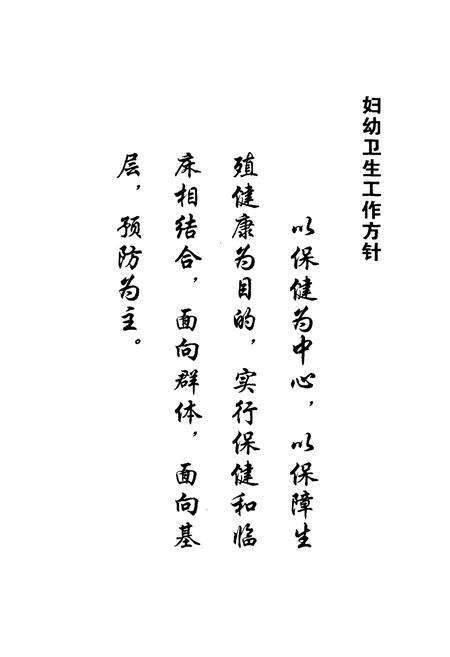 妇幼卫生工作方针
以保健为中心，以保障生
殖健康为目的，实行保健和临
床相结合，面向群体，面向基
层，预防为主。